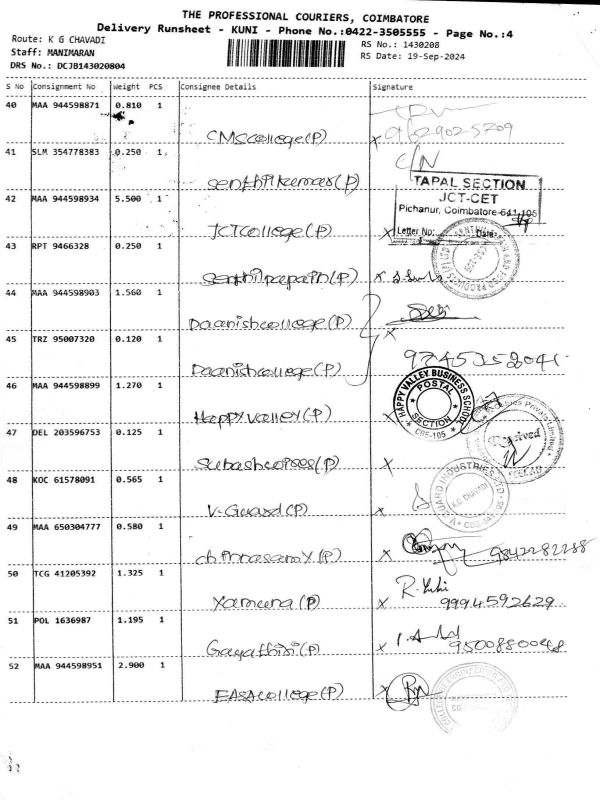 THE PROFESSIONAL COURIERS, COIMBATORE
Delivery Runsheet - KUNI - Phone No.:0422-3505555 - Page No.:4
Route: K G CHAVADI
RS No.: 1430208
Staff: MANIMARAN
RS Date: 19-Sep-2024
DRS No.: DCJB143020804
S No Consignment No Weight PCS Consignee Details Signature
40 MAA 944598871 0.810 1
CMS college (P) x 9629025709
41 SLM 354778383 0.250 1 C/N
Senthilkumar (P)
TAPAL SECTION
JCT-CET
42 MAA 944598934 5.500 1 Pichanur, Coimbatore-641 105
JCT college (P) x Letter No: Date:
43 RPT 9466328 0.250 1
Senthilpapain (P) x
44 MAA 944598903 1.560 1
Daanish college (P) x
45 TRZ 95007320 0.120 1
Daanish college (P)
46 MAA 944598899 1.270 1 HAPPY VALLEY BUSINESS SCHOOL
POSTAL SECTION
CBE-105
Happy valley (P) x
47 DEL 203596753 0.125 1 Received
Subash corpes (P) x
48 KOC 61578091 0.565 1 V-GUARD INDUSTRIES LTD
K.G. CHAVADI
V-Guard (P) x
49 MAA 650304777 0.580 1
chinnasamy (P) x 9842282288
50 TCG 41205392 1.325 1
Yamuna (P) x 9994592629
51 POL 1636987 1.195 1
Gayathiri (P) x
52 MAA 944598951 2.900 1
EASA college (P) x